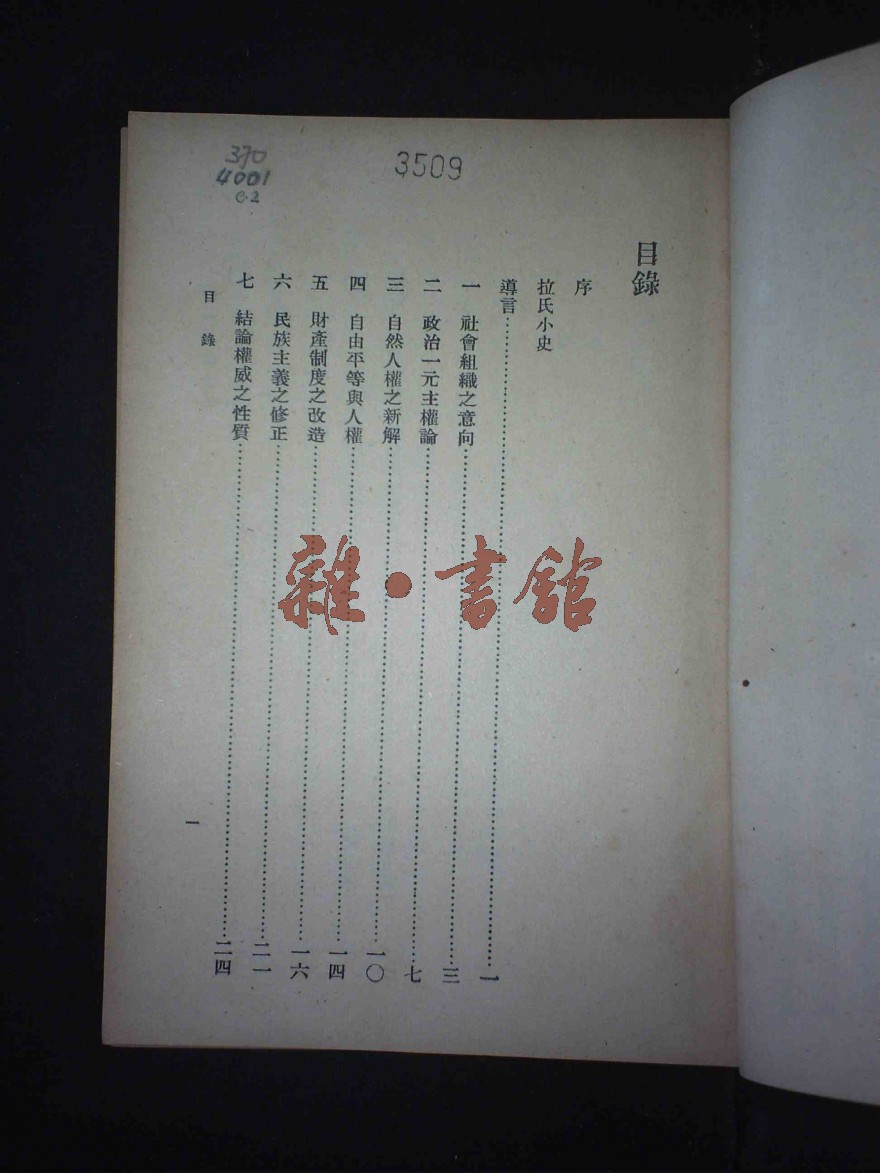 370
4001
C.2
3509
目錄
序
拉氏小史
導言……一
一 社會組織之意向……三
二 政治一元主權論……七
三 自然人權之新解……一〇
四 自由平等與人權……一四
五 財產制度之改造……一六
六 民族主義之修正……二一
七 結論權威之性質……二四
目錄
一
雜·書館